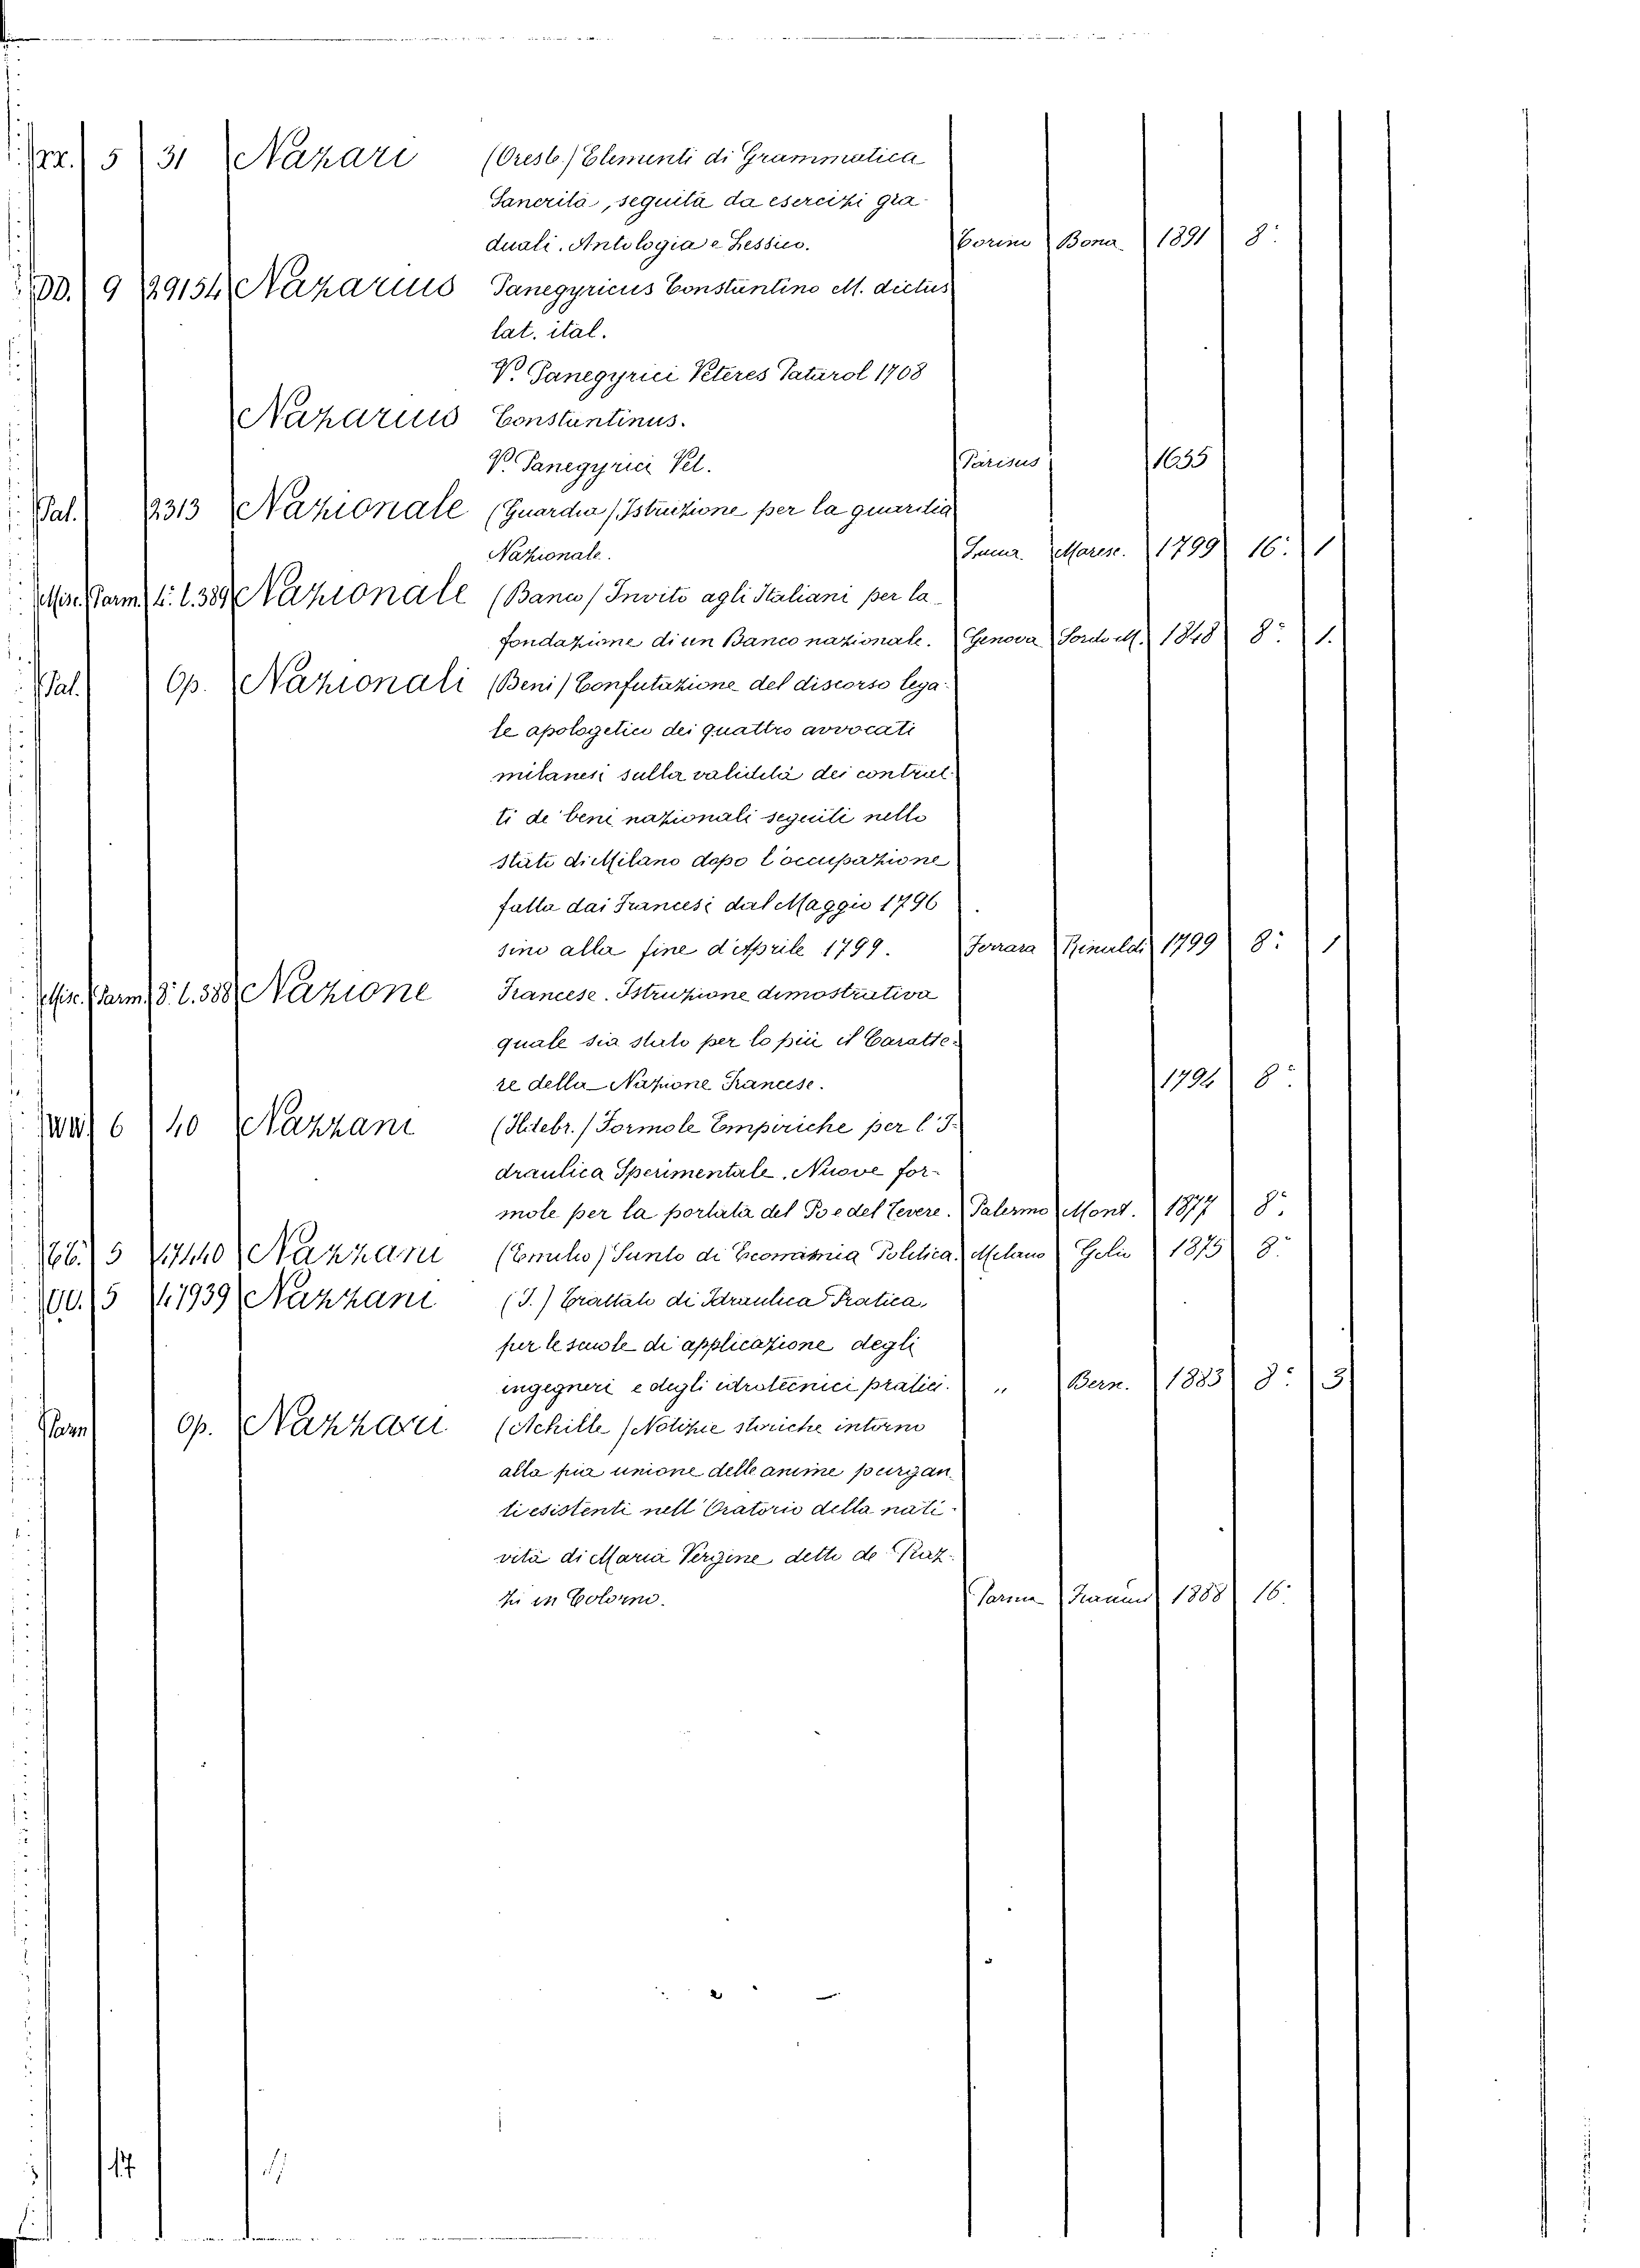 rr. 5 31 Nazari (Oreste) Elementi di Grammatica
Sancrita, seguita da esercizi gra-
duali. Antologia e Lessico. Torino Bona 1891 8°
DD. 9 29154 Nazarius Panegyricus Constantino M. dictus
lat. ital.
V. Panegyrici Veteres Taturol 1708
Nazarius Constantinus.
V. Panegyrici Vet. Parisus 1655
Pal. 2313 Nazionale (Guardia) Istruzione per la guardia
Nazionale. Maresc. 1799 16. 1
Misc. Parm. 4. l. 389 Nazionale (Banco) Invito agli Italiani per la
fondazione di un Banco nazionale. Genova Sordo M. 1848 8° 1.
Pal. Op. Nazionali (Beni) Confutazione del discorso lega-
le apologetico dei quattro avvocati
milanesi sulla validità dei contrat-
ti de' beni nazionali seguiti nello
stato di Milano dopo l'occupazione
fatta dai Francesi dal Maggio 1796
sino alla fine d'Aprile 1799. Ferrara Rinaldi 1799 8° 1
Misc. Parm. 8. l. 388 Nazione Francese. Istruzione dimostrativa
quale sia stato per lo più il Caratte-
re della Nazione Francese. 1794 8°
WW 6 40 Nazzani (Ildebr.) Formole Empiriche per l'I-
draulica Sperimentale. Nuove for-
mole per la portata del Po e del Tevere. Palermo Mont. 1877 8°
bb. 5 47440 Nazzani (Emilio) Sunto di Economia Politica. Milano 1875 8°
QQ. 5 41939 Nazzani (I.) Trattato di Idraulica Pratica
per le scuole di applicazione degli
ingegneri e degli idrotecnici pratici. " Bern. 1883 8° 3
Parm Op. Nazzari (Achille) Notizie storiche intorno
alla pia unione delle anime purgan-
ti esistenti nell' Oratorio della nati-
vità di Maria Vergine detto de' Ruz-
zi in Colorno. Parma 1888 16°
17